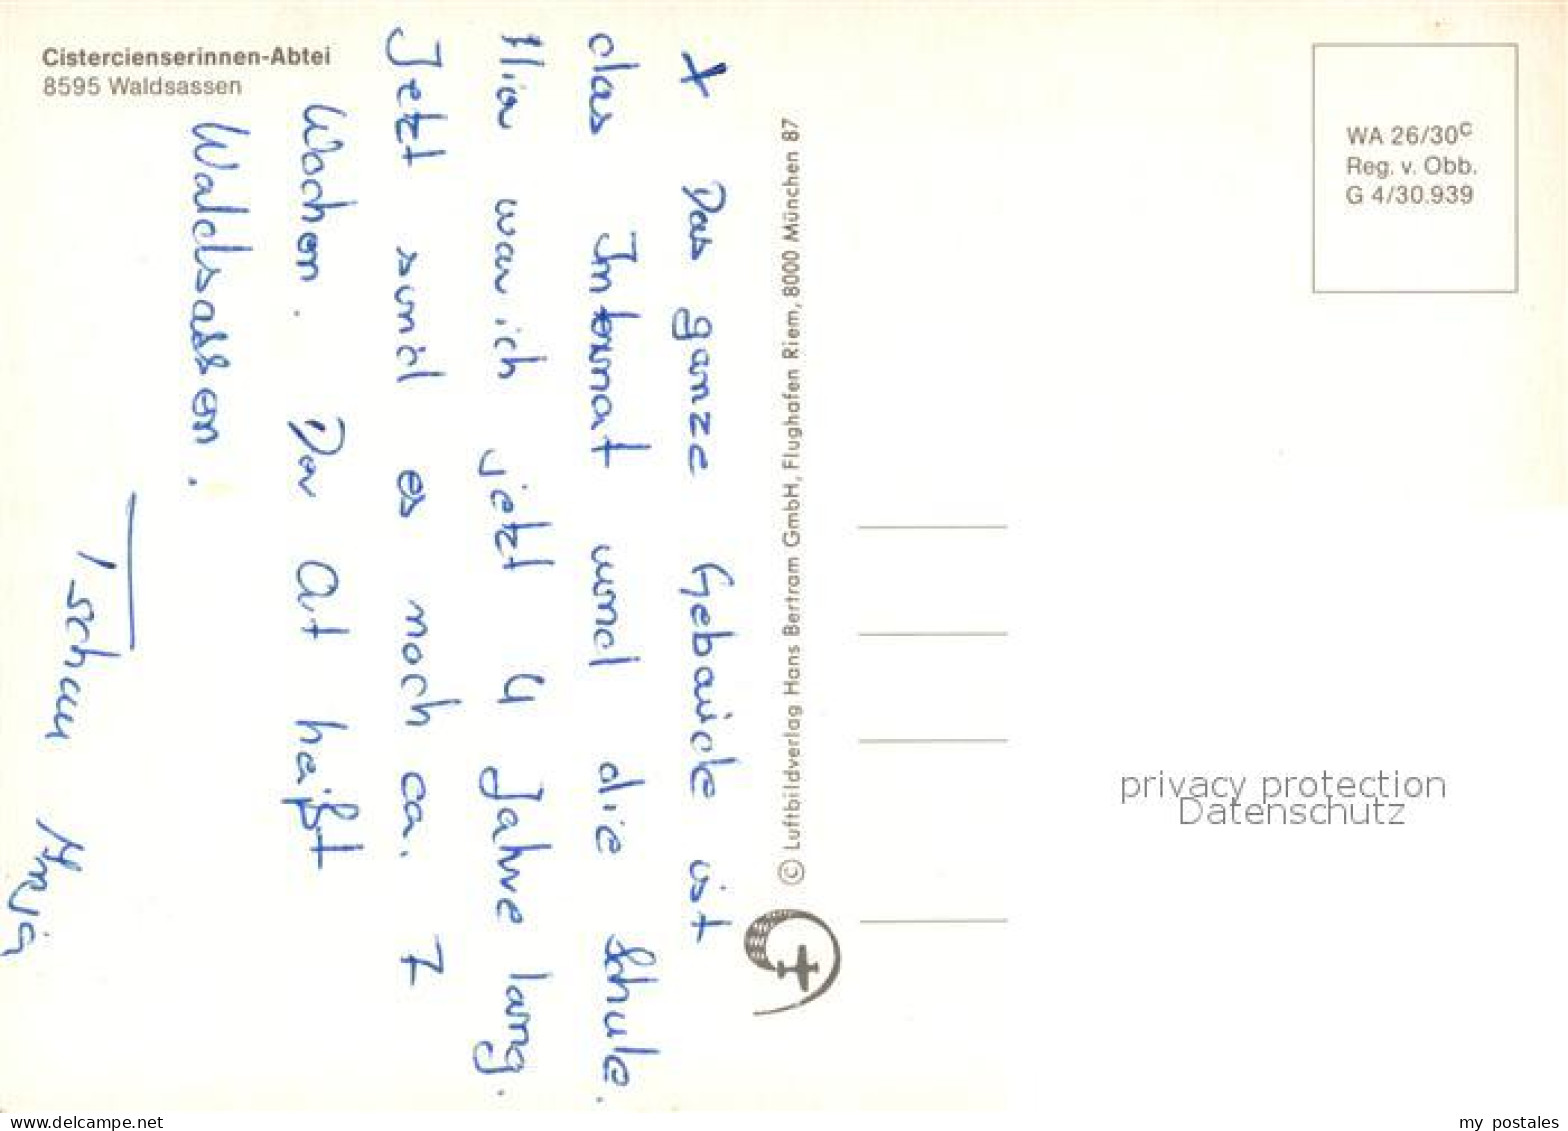 Cistercienserinnen-Abtei
8595 Waldsassen
X Das ganze Gebäude ist
das Internat und die Schule.
Hier war ich jetzt 4 Jahre lang.
Jetzt sind es noch ca. 7
Wochen. Der Ort heißt
Waldsassen.
Tschau Anja
© Luftbildverlag Hans Bertram GmbH, Flughafen Riem, 8000 München 87
WA 26/30C
Reg. v. Obb.
G 4/30.939
privacy protection
Datenschutz
www.delcampe.net
my_postales